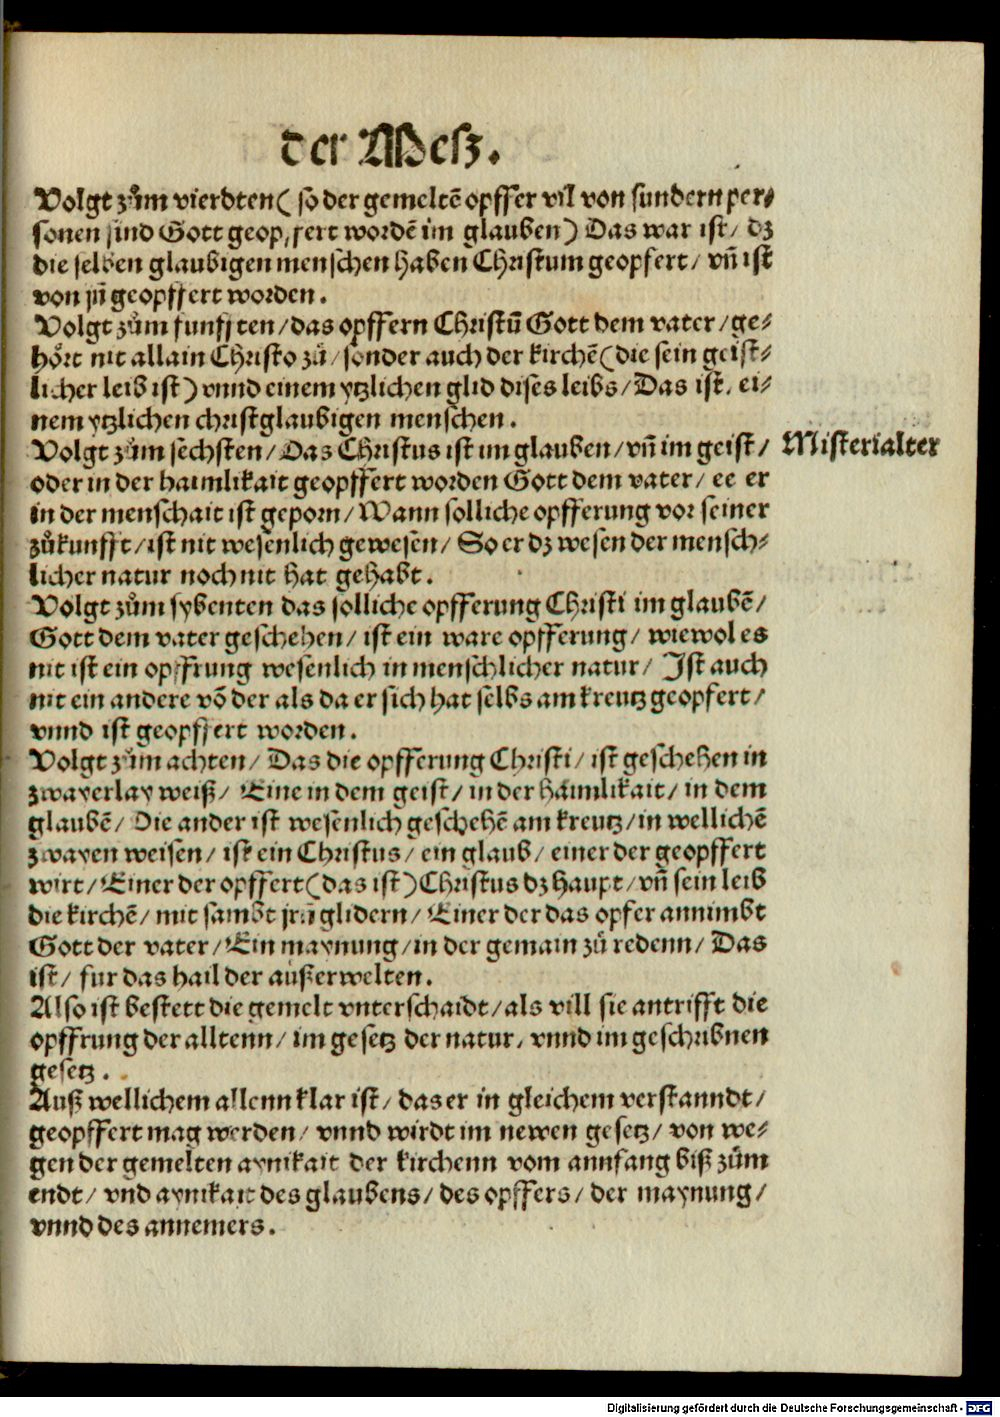 der Mesz.
Volgt zům vierdten( so der gemeltē opffer vil von sundern per⸗
sonen sind Gott geopffert wordē im glauben) Das war ist/ dz
die selben glaubigen menschen haben Christum geopfert/ vñ ist
von jñ geopffert worden.
Volgt zům funfften/das opffern Christū Gott dem vater/ge⸗
hört nit allain Christo zů/sonder auch der kirchē(die sein geist⸗
licher leib ist) vnnd einem ytzlichen glid dises leibs/Das ist. ei⸗
nem ytzlichen christglaubigen menschen.
Volgt zům sechsten/Das Christus ist im glauben/vñ im geist/ Misterialter
oder in der haimlikait geopffert worden Gott dem vater/ ee er
in der menschait ist geporn/Wann solliche opfferung vor seiner
zůkunfft/ist nit wesenlich gewesen/ So er dz wesen der mensch⸗
licher natur noch nit hat gehabt.
Volgt zům sybenten das solliche opfferung Christi im glaubē/
Gott dem vater geschehen/ ist ein ware opfferung/ wiewol es
nit ist ein opffrung wesenlich in menschlicher natur/ Ist auch
nit ein andere vō der als da er sich hat selbs am kreutz geopfert/
vnnd ist geopffert worden.
Volgt zům achten/ Das die opfferung Christi/ ist geschehen in
zwayerlay weiß/ Eine in dem geist/ in der haimlikait/ in dem
glaubē/ Die ander ist wesenlich geschehē am kreutz/in wellichē
zwayen weisen/ ist ein Christus/ ein glaub/ einer der geopffert
wirt/Einer der opffert(das ist)Christus dz haupt/vñ sein leib
die kirchē/ mit sambt jrñ glidern/Einer der das opfer annimbt
Gott der vater/Ein maynung/in der gemain zů redenn/ Das
ist/ fur das hail der außerwelten.
Also ist bestett die gemelt vnterschaidt/als vill sie antrifft die
opffrung der alltenn/ im gesetz der natur, vnnd im geschribnen
gesetz.
Auß wellichem allenn klar ist/ das er in gleichem verstanndt/
geopffert mag werden/ vnnd wirdt im newen gesetz/ von we⸗
gen der gemelten aynikait der kirchenn vom annfang biß zům
endt/ vnd aynikait des glaubens/ des opffers/ der maynung/
vnnd des annemers.
Digitalisierung gefördert durch die Deutsche Forschungsgemeinschaft - DFG